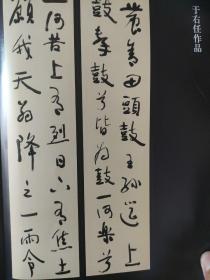 于右任作品
農舍田頭鼓王孫筵上
鼓擊鼓兮皆為鼓一何樂兮
一何苦上有烈日下有焦土
願我天翁降之一雨令